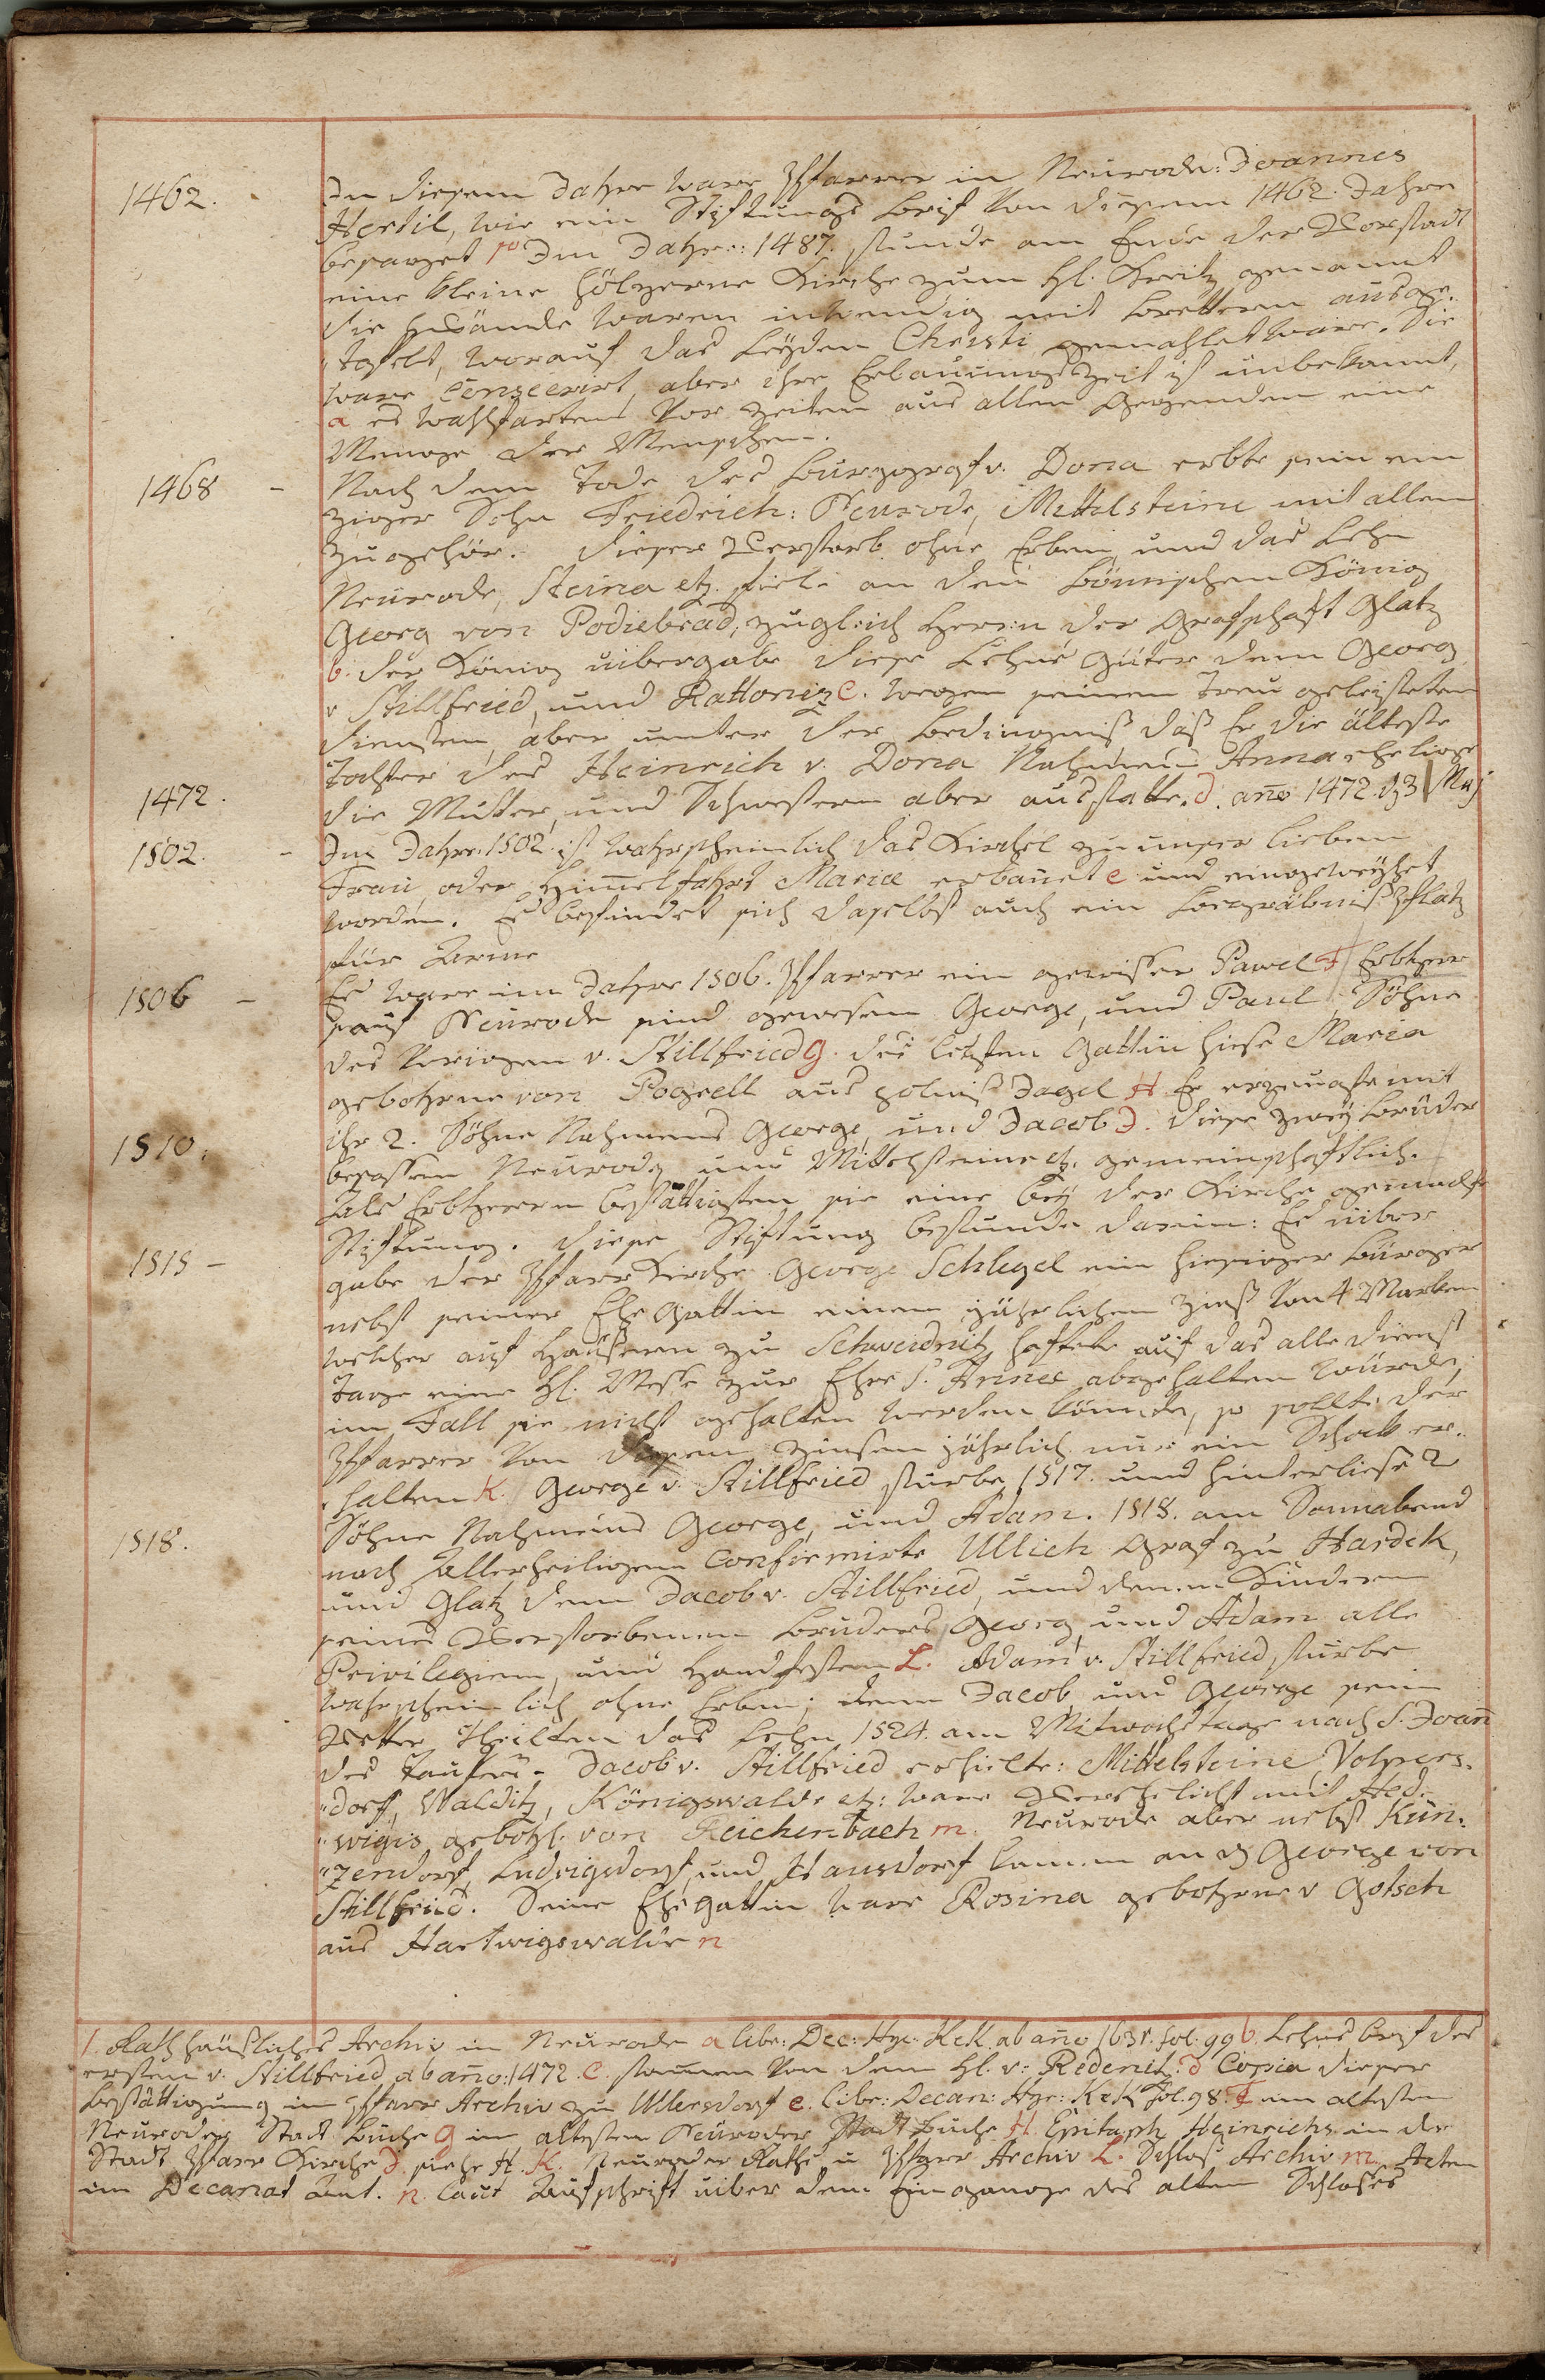 1462. In diesem Jahre ware Pfarrer in Neurode: Joannes
Hertil, wie ein Stiftungs brif von diesem 1462. Jahre
besaget Im Jahre: 1487. stunde am Ende der Vorstadt
eine kleine hölzerne Kirche zum Hl. Kreitz genannt
die Wände waren inwendig mit brettern ausge-
"tafelt, worauf das Leyden Christi gemahlet ware. Die
ware Consecrirt, aber ihre Erbauungszeit ist unbekannt,
a es wahlfarteten vor Zeiten aus allen Gegenden eine
Menge der Menschen.
1468 - Nach dem Tode des burggraf v. Dona erbte sein ein
ziger Sohn Friedrich: Neurode, Mittelsteine mit allem
zugehör. Dieser Verstarb ohne Erben und das Lehn
Neurode, Steina etz. fiele an den bömischen König
Georg von Podiebrad, zugleich Herrn der Grafschaft Glatz
b. der König uibergabe diese Lehns Güter dem Georg
v Stillfried, und Rattoniz C. wegen seinem treu geleisteten
diensten, aber unter der bedingniß daß Er die älteste
Tochter des Heinrich v. Dona Nahmens Anna eheliche
1472. die Mutter, und Schwestern aber ausstatte. d. año 1472. d 3 Maj
1502. - Im Jahre 1502. ist wahrscheinlich das Kirchel zu unser lieben
Frau, oder Himelfahrt Mariæ erbauet e und eingeweyhet
worden. Es befindet sich daselbst auch ein begräbniß Pflatz
für Arme
1506 - Es ware im Jahre 1506. Pfarrer ein gewisser Pawel F Erbherr
auf Neurode sind gewesen George, und Paul, Söhne
des Vorigen v. Stillfried G. des letzten Gattin hieße Maria
gebohrne von Pogrell aus polnisch Jagel H Er erzeugte mit
1510. ihr 2. Söhne Nahmens George, und Jacob J. diese zwey brüder
besassen Neurode und Mittelsteine etz. gemeinschaftlich.
Als Erbherrn bestättigten sie eine bey der Kirche gemachte
1515 - Stiftung. diese Stiftung bestunde darin: Es uiber
gabe der Pfarr Kirche George Schlegel ein hiesiger bürger
nebst seiner Ehe Gattin einen jährlichen Zins von 4 Marken
welcher auf Häusern zu Schweidnitz haftete auf das alle Dienst
Tage eine Hl. Messe zur Ehre S. Annæ abgehalten würde,
im Fall sie nicht gehalten werden könnte, so sollte der
Pfarrer von diesem Zinsen jährlich nur ein Schock er-
"halten K. George v. Stillfried sturbe 1517. und hinterliese 2
Söhne Nahmens George, und Adam. 1518. am Sonnabend
1518. nach Allerheiligen Confirmirte Ullrich Graf zu Hardek,
und Glatz dem Jacob v. Stillfried, und denen Kindern
seines Verstorbenen bruders Georg, und Adam alle
Privilegien, und Handfesten L. Adam v. Stillfried sturbe
wahrscheinlich ohne Erben; denn Jacob, und George sein
Vetter theilten das Lehn 1524. am Mitwochstage nach S. Joañ
des Taufers. Jacob v. Stillfried erhielte: Mittelsteine, Volpers-
"dorf, Walditz, Königswalde etz: ware Verehelicht mit Hed-
"wigis gebohr. von Reichenbach m. Neurode aber nebst Kun-
"zendorf, Ludwigsdorf, und Hausdorf kamen an d George von
Stillfried. Seine Ehegattin ware Rosina gebohrne v Gotsch
aus Hartwigswalde n
Rathhäusliches Archiv in Neurode a libr: Dec: Hye: Kek. ab año 1631. fol. 99 b. Lehns brif des
ersten v. Stillfried ab año: 1472. C. stamen von dem Hl. v: Redenitz. d Copia dieser
bestättigung im Pfarr Archiv zu Ullersdorf e. libr: Decan: Hye: Kek fol. 98. F im altesten
Neuroder Stadt buche G im altesten Neuroder Stadt buche H. Epitaph Heinrichs in der
Stadt Pfarr Kirche J. siehe H. K. Neuroder Raths u Pfarr Archiv L. Schlos Archiv m. Acten
im Decanat Amt. n. laut Aufschrift uiber dem Eingange des alten Schloßes